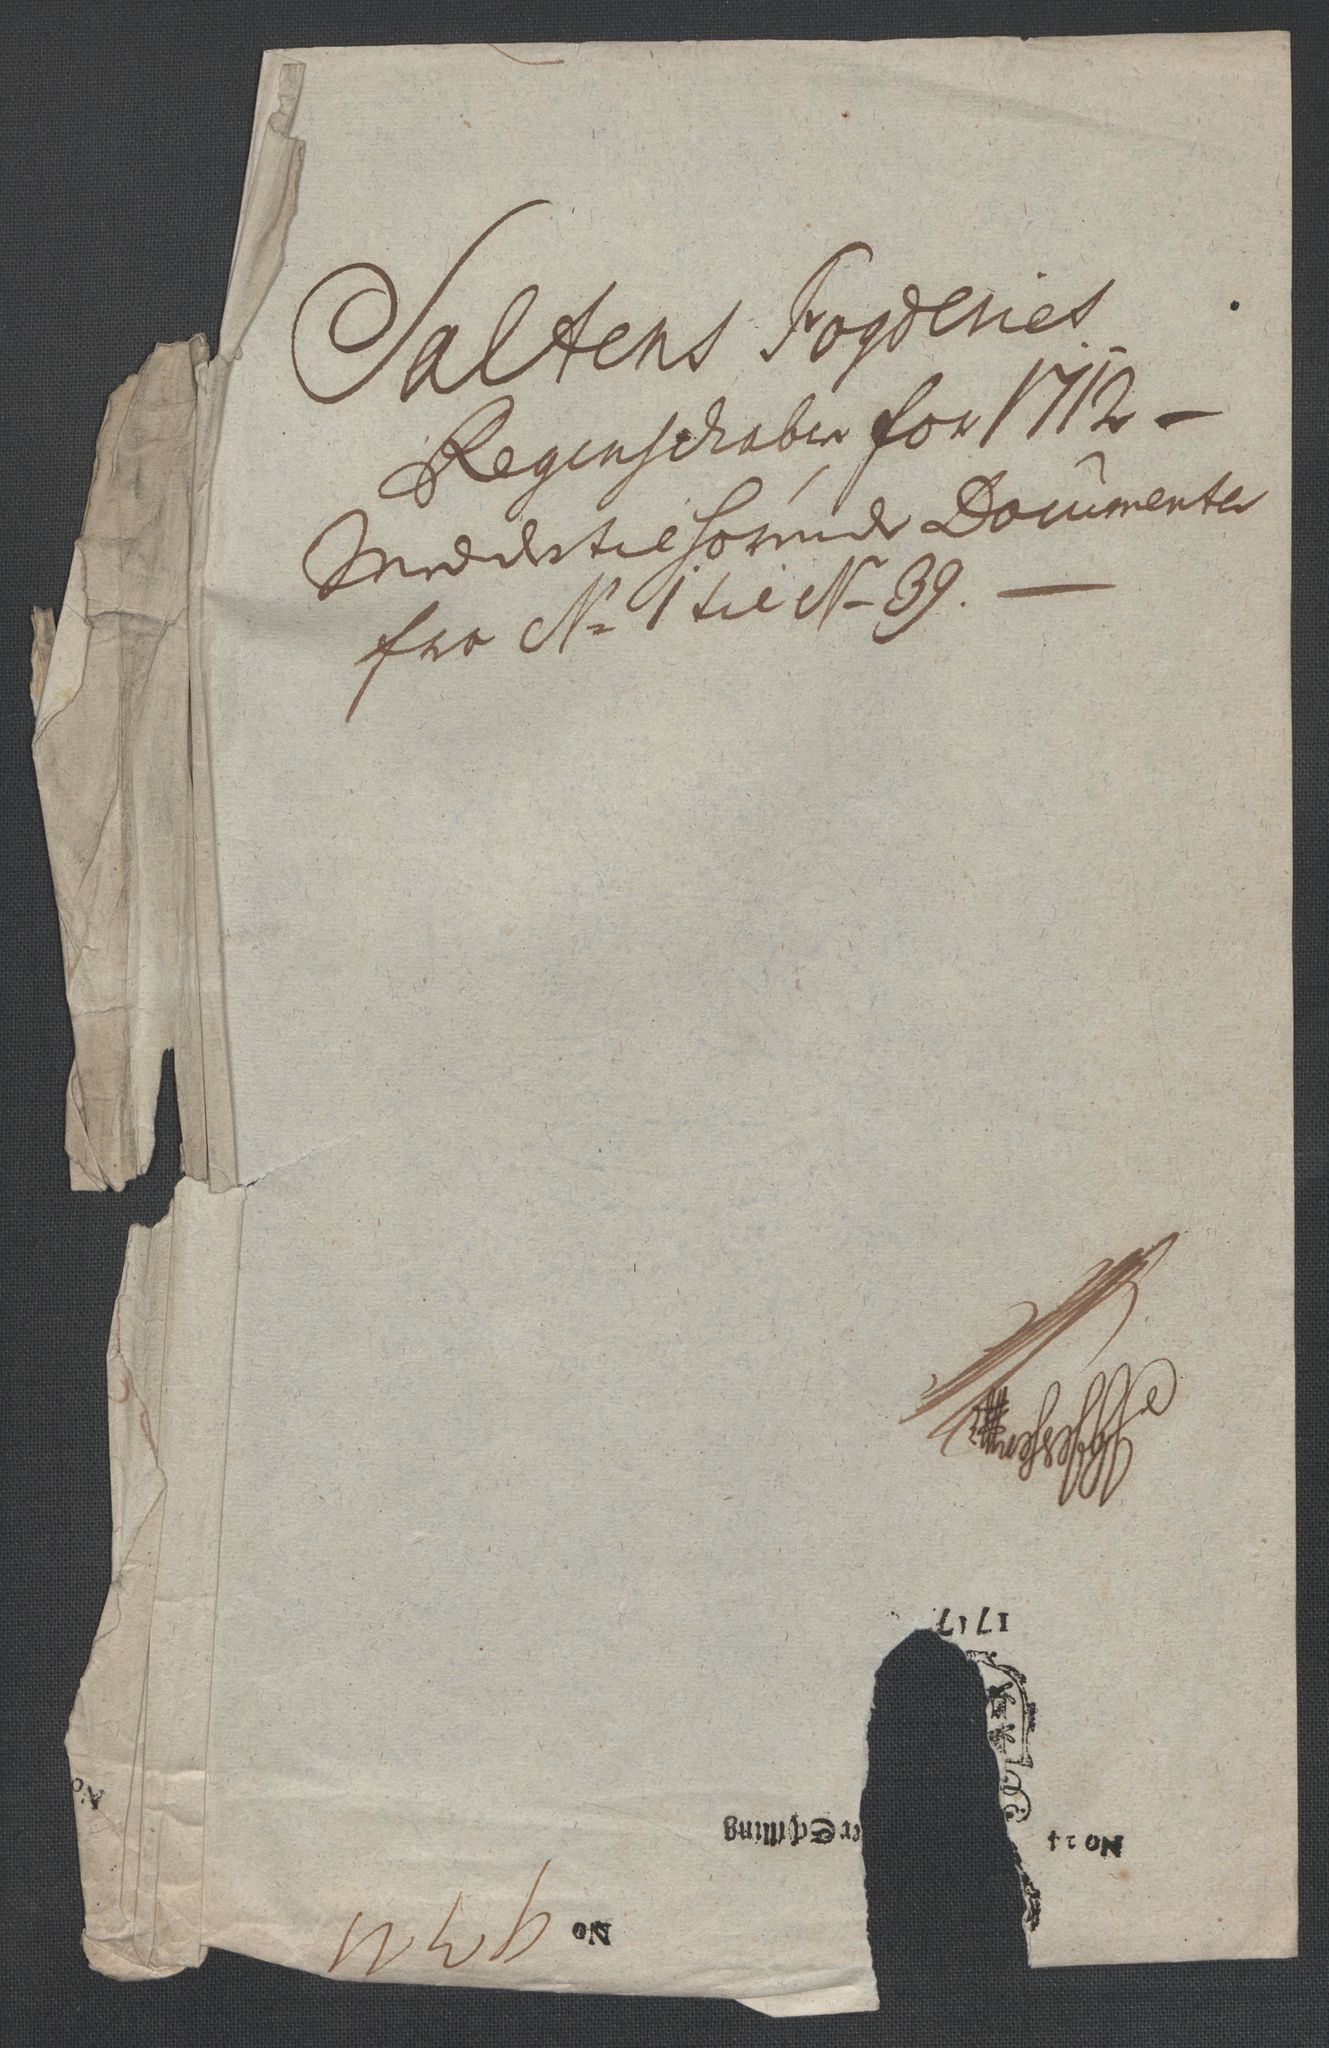 Saltens Fogderies
Regenschaber for 1712 –
Med dertil hörende Documenter
fra No 1 til No 39. –
1717
No 21
er Schilling
No 93
No